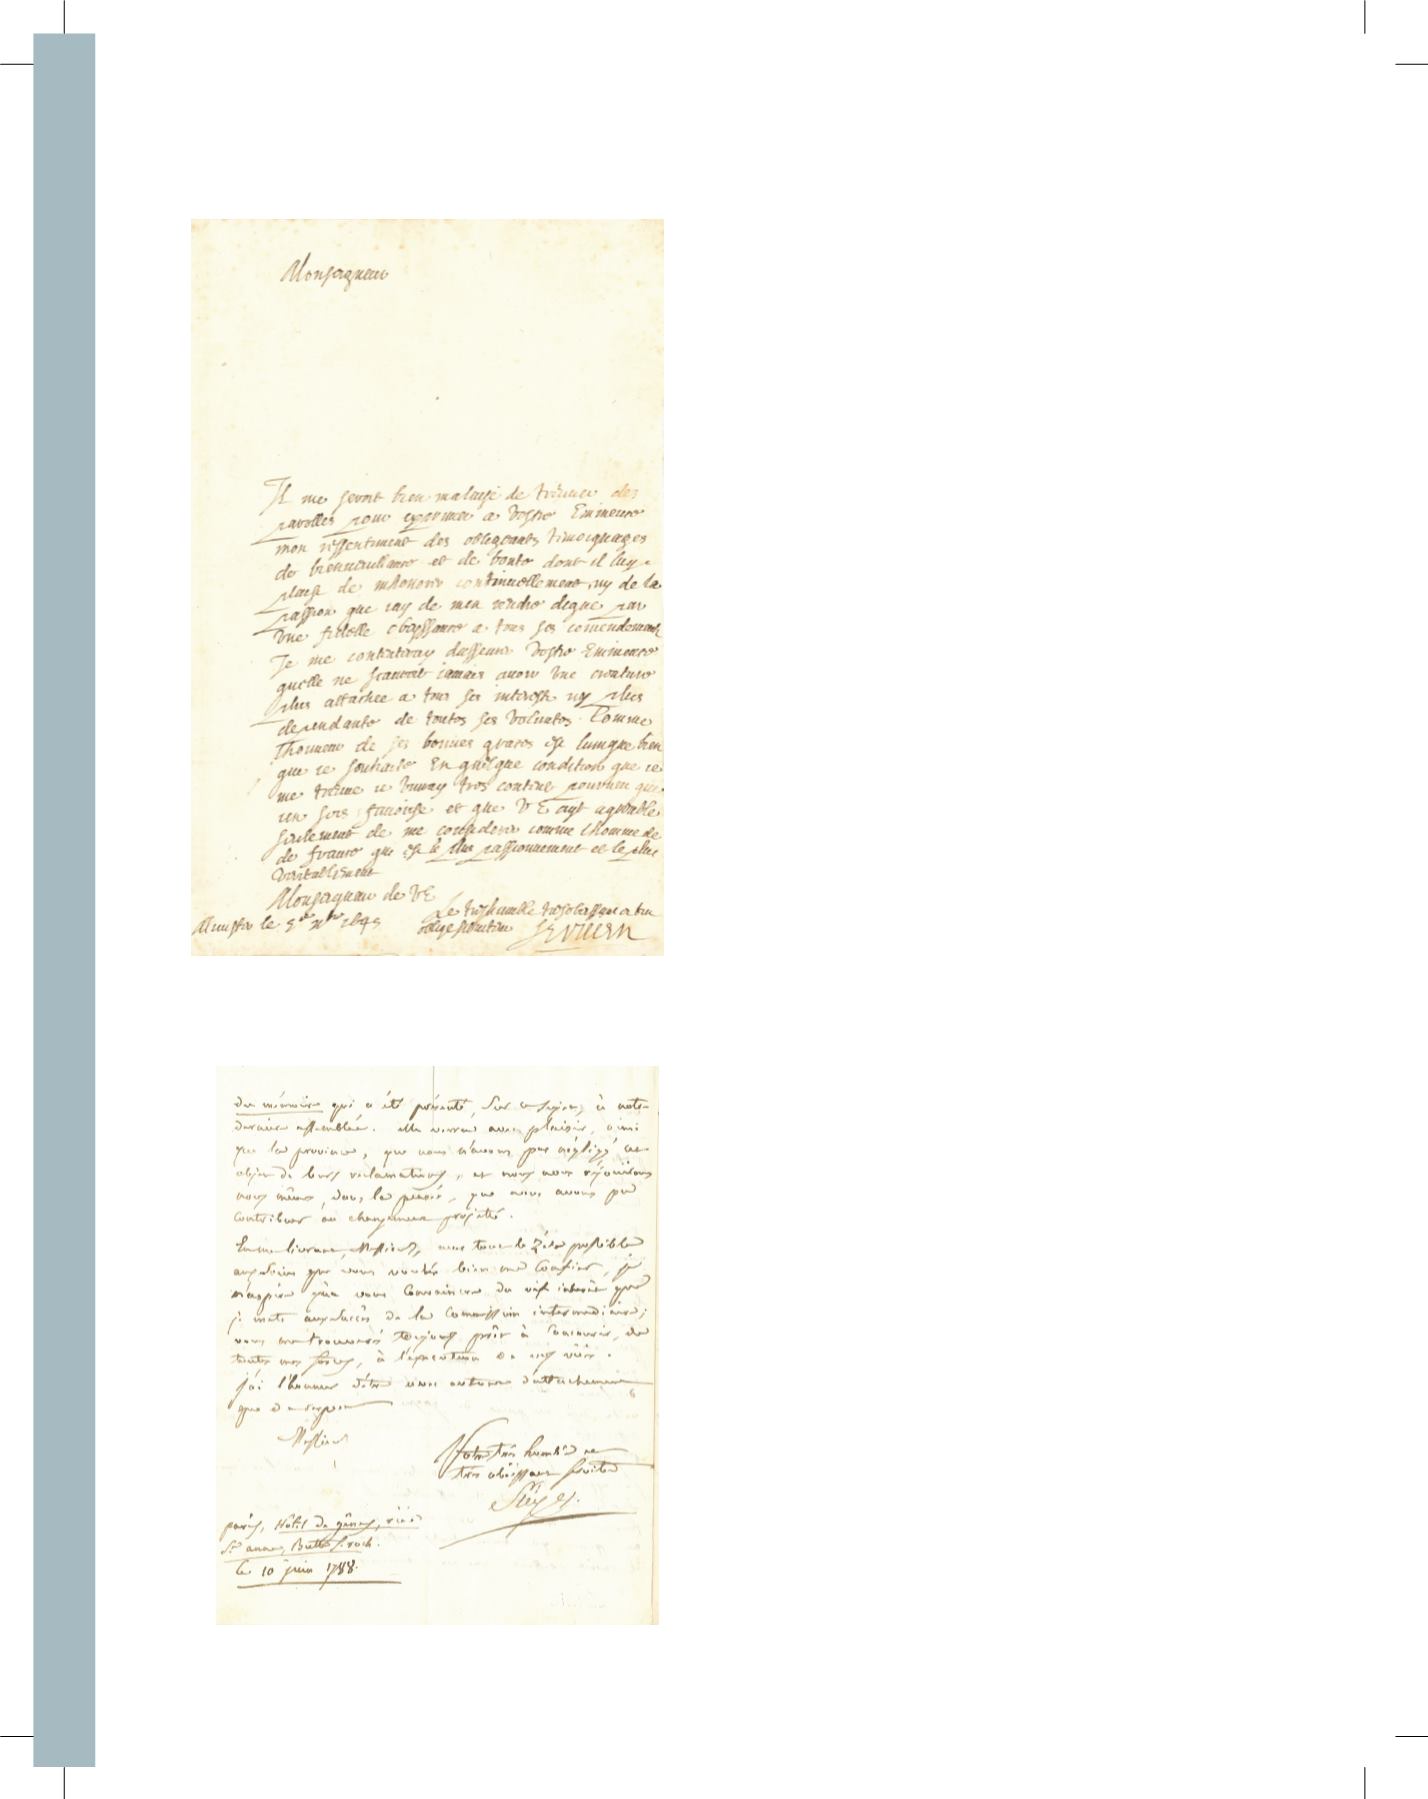 Monseigneur
Il me seroit bien malaisé de treuuer des
parolles pour exprimer a Vostre Eminence
mon ressentiment des obligeants timoignages
de bienueuillance et de bonté dont il luy
plaise de mhonorer continuellement ny de la
passion que iay de men rendre digne par
Vne fidelle obeyssance a tous ses comendements
Je me contenteray dasseurer Vostre Eminence
quelle ne scauroit iamais auoir Vne creature
plus attachee a tous ses interests ny plus
dependante de toutes ses Volontes. Comme
lhonneur de ses bonnes graces est lunique bien
que ie souhaite En quelque condition que ie
me treuue ie Viuray tres content pourueu que
ien sois fauorise et que V E ayt agreable
seulement de me considerer comme lhomme de
de france qui est le plus passionnement et le plus
Veritablement
Monseigneur de V E
Le treshumble tresobeissant et tres
Munster le 5 1645
oblige seruiteur SERVIEN
du mémoire qui a été présenté, sur ce sujet, à notre
derniere assemblée. elle verra avec plaisir, ainsi
que la province, que nous n'avons pas négligé cet
objet de leurs réclamations, et nous nous réjouirons
nous mêmes, dans la pensée, que nous avons pu
contribuer au changement projetté.
En me livrant, Messieurs, avec tout le zèle possible
aux soins que vous voulés bien me confier, je
n'aspire qu'à vous convaincre du vif intérêt que
je mets aux succès de la Commission intermédiaire;
vous me trouverés toujours prêt à concourir, de
toutes mes forces, à l'exécution de ses vües.
j'ai l'honneur d'être avec autant d'attachement
que de respect
Messieurs
Votre très humble et
très obéissant serviteur
Siéyes.
paris, Hôtel de gênes, rüe
Ste anne, Butte S. roch.
le 10 juin 1788.